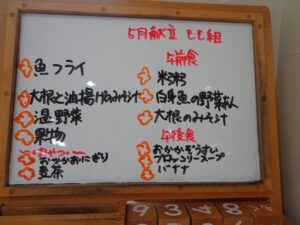 5月献立 もも組
魚フライ
大根と油揚げのみそ汁
温野菜
果物
〜おやつ〜
おかかおにぎり
麦茶
午前食
米粥
白身魚の野菜あん
大根のみそ汁
午後食
おかかぞうすい
ブロッコリースープ
バナナ
9 3 4 8